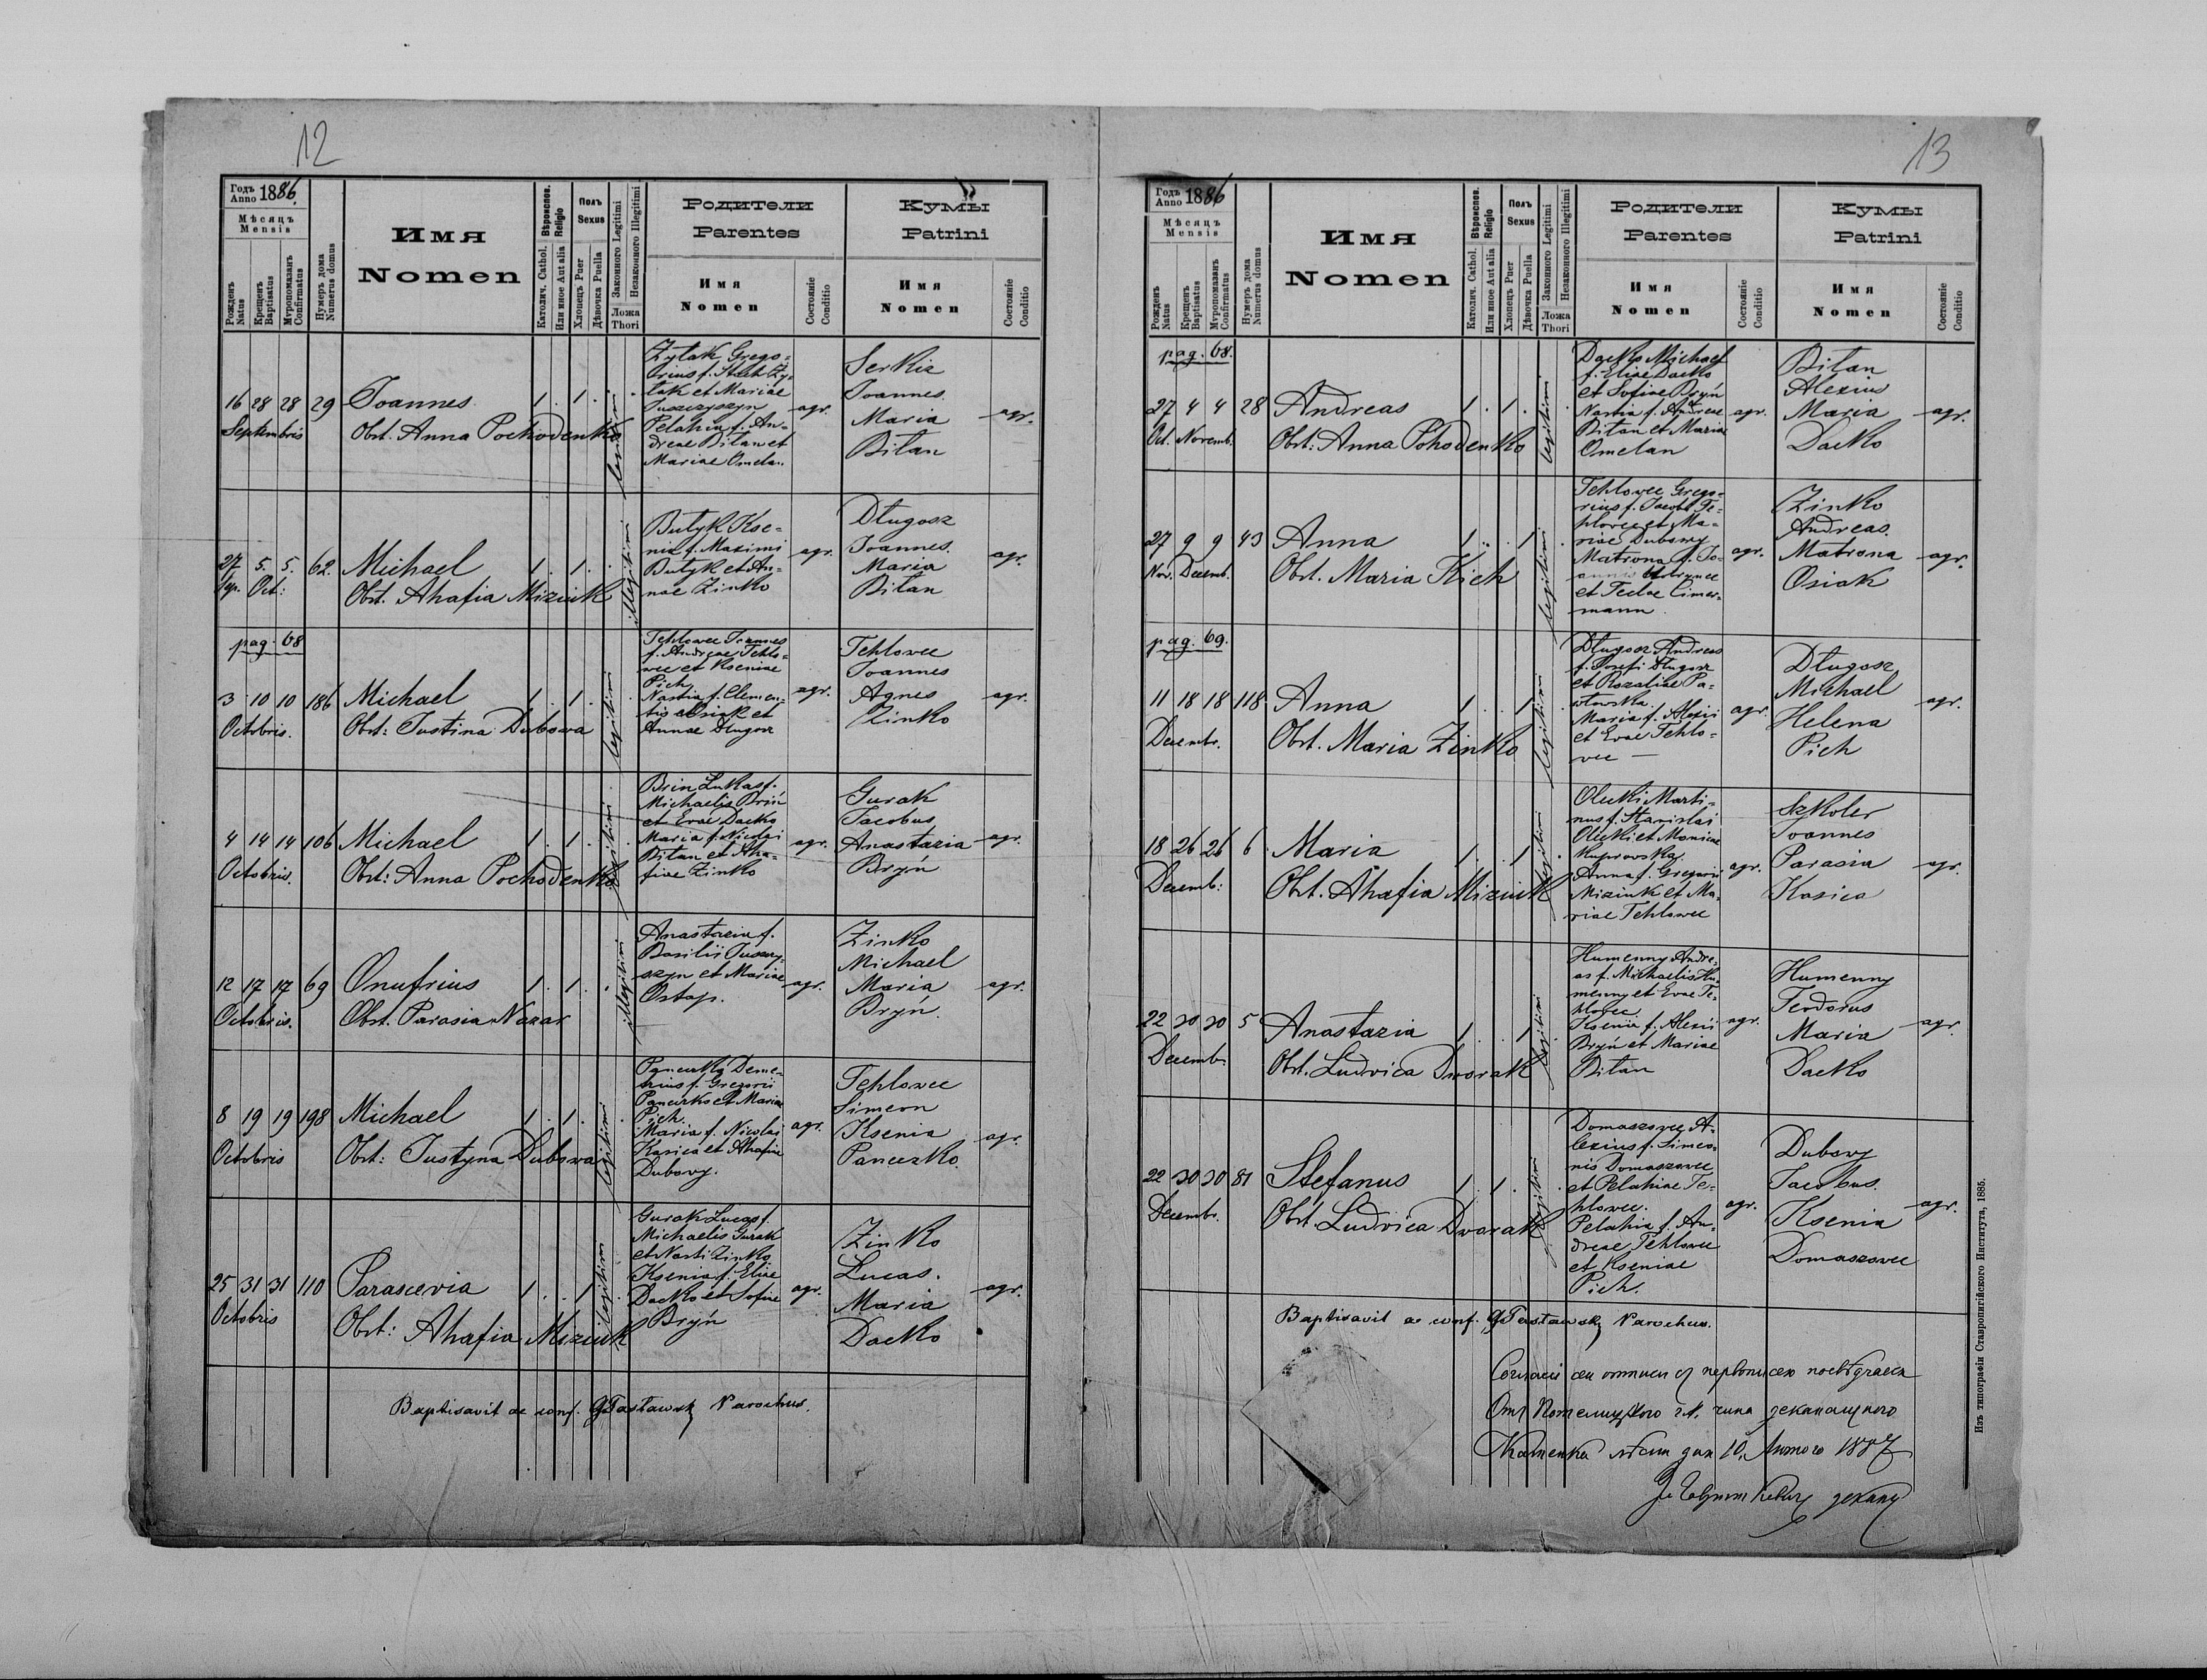 12
Годъ
Anno 1886.
Мѣсяцъ
Mensis
Рожденъ
Natus
Крещенъ
Baptisatus
Мѵропомазанъ
Confirmatus
Нумеръ дома
Numerus domus
Имя
Nomen
Вѣроиспов.
Religio
Католич. Cathol.
Или иное Aut alia
Полъ
Sexus
Хлопецъ Puer
Дѣвочка Puella
Законного Legitimi
Незаконного Illegitimi
Ложа
Thori
Родители
Parentes
Имя
Nomen
Состояніе
Conditio
Кумы
Patrini
Имя
Nomen
Состояніе
Conditio
16 28 28 29 Joannes 1. 1.
Septembris
Obst. Anna Pochodenko
Zytak Grego-
rius f. Zy-
tak et Mariae
Juszczyszyn
Pelahia f. An-
dreae Bitan et
Mariae Omelan
agr.
Serkiz
Joannes
Maria
Bitan
agr.
27 5. 5. 62. Michael 1. 1.
Sep. Oct:
Obst. Ahafia Miziuk
illegitimi
Butyk Kse-
nia f. Maximi
Butyk et An-
nae Zinko
agr.
Długosz
Joannes.
Maria
Bitan
agr.
pag. 68
3 10 10 186 Michael 1. 1.
Octobris.
Obst: Justina Dubowa
legitimi
Tehlowec Joannes
f. Andreae Tehlo-
wec et Kseniae
Pich
Nastia f. Clemen-
tis Osiak et
Annae Długosz
agr.
Tehlowec
Joannes
Agnes
Zinko
agr.
4 14 14 106 Michael 1. 1.
Octobris.
Obst: Anna Pochodenko
legitimi
Brin Lukas f.
Michaelis Briń
et Evae Dacko
Maria f. Nicolai
Bitan et Aha-
fiae Zinko
agr.
Gurak
Jacobus
Anastazia
Bryń
agr.
12 17 17 69 Onufrius 1. 1.
Octobris.
Obst. Parasia Nazar
illegitimi
Anastazia f.
Basilii Juszczy-
szyn et Mariae
Ostap.
agr.
Zinko
Michael
Maria
Bryń.
agr.
8 19 19 198 Michael 1. 1.
Octobris
Obst: Justyna Dubowa
legitimi
Panczko Deme-
trius f. Gregorii
Panczko et Mariae
Pich.
Maria f. Nicolai
Kasica et Ahafiae
Dubowy.
agr.
Tehlowec
Simeon
Ksenia
Panczko.
agr.
25 31 31 110 Parascevia 1. . 1
Octobris
Obst: Ahafia Miziuk
legitimi
Gurak Lucas f.
Michaelis Gurak
et Nasti Zinko
Ksenia f. Eliae
Dacko et Sofiae
Bryń
agr.
Zinko
Lucas.
Maria
Dacko
agr.
Baptisavit ac conf. Parochus.
13
Годъ
Anno 1886
Мѣсяцъ
Mensis
Рожденъ
Natus
Крещенъ
Baptisatus
Мѵропомазанъ
Confirmatus
Нумеръ дома
Numerus domus
Имя
Nomen
Вѣроиспов.
Religio
Католич. Cathol.
Или иное Aut alia
Полъ
Sexus
Хлопецъ Puer
Дѣвочка Puella
Законного Legitimi
Незаконного Illegitimi
Ложа
Thori
Родители
Parentes
Имя
Nomen
Состояніе
Conditio
Кумы
Patrini
Имя
Nomen
Состояніе
Conditio
pag. 68.
27 4 4 28 Andreas 1. 1.
Oct. Novemb.
Obst: Anna Pohodenko
legitimi
Dacko Michael
f. Eliae Dacko
et Sofiae Bryń
Nastia f. Andreae
Bitan et Mariae
Omelan
agr.
Bitan
Alexius
Maria
Dacko
agr.
27 9 9 43 Anna 1. . 1
Nov. Decemb.
Obst. Maria Kich
legitimi
Tehlowec Grego-
rius f. Jacobi Te-
hlowec et Ma-
riae Dubowy
Matrona f. Jo-
annis
et Teclae Cimer-
mann
agr.
Zinko
Andreas.
Matrona
Osiak
agr.
pag. 69.
11 18 18 118. Anna 1. . 1
Decembr.
Obst. Maria Zinko
legitimi
Długosz Andreas
f. Josefi Długosz
et Rozaliae Pa-
włowska.
Maria f. Alexii
et Evae Tehlo-
wec —
agr.
Długosz
Michael
Helena
Pich
agr.
18 26 26 6 Maria 1. . 1
Decemb:
Obst. Ahafia Miziuk
legitimi
Olecki Marti-
nus f. Stanislai
Olecki et Moniae
Kuprowska
Anna f. Gregorii
Miziuk et Ma-
riae Tehlowec
agr.
Szkoler
Joannes
Parasia
Kasica
agr.
22 30 30 5 Anastazia 1. . 1
Decembr.
Obst. Ludvica Dworak
legitimi
Humenny Andre-
as f. Michaelis Hu-
menny et Evae Te-
hlowec
Ksenia f. Alexii
Bryń et Mariae
Bitan
agr.
Humenny
Teodorus
Maria
Dacko
agr.
22 30 30 81 Stefanus 1. 1.
Decembr.
Obst. Ludvica Dvorak
legitimi
Domaszowec A-
lexius f. Simeo-
nis Domaszowec
et Pelahiae Te-
hlowec.
Pelahia f. An-
dreae Tehlowec
et Kseniae
Pich.
agr.
Dubowy
Jacobus.
Ksenia
Domaszowec
agr.
Baptisavit ac conf. Parochus.
10. Лютого 1887
Изъ типографіи Ставропигійского Института, 1885.